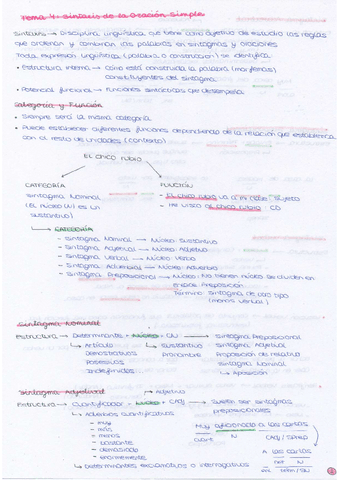 Tema 4: Sintaxis de la Oración Simple
Sintaxis → Disciplina lingüística que tiene como objetivo de estudio las reglas
que ordenan y combinan las palabras en sintagmas y oraciones
Toda expresión lingüística (palabra o construcción) se identifica
• Estructura interna → Cómo está construida la palabra (morfemas)
constituyentes del sintagma
• Potencial funcional → Funciones sintácticas que desempeña
Categoría y Función
• Siempre será la misma categoría
• Puede establecer diferentes funciones dependiendo de la relación que establezca
con el resto de unidades (contexto)
EL CHICO RUBIO
CATEGORÍA
FUNCIÓN
Sintagma Nominal
(El núcleo (N) es un
sustantivo)
- El chico rubio va a mi clase: Sujeto
- He visto al chico rubio: CD
CATEGORÍA
- Sintagma Nominal → Núcleo Sustantivo
- Sintagma Adjetival → Núcleo Adjetivo
- Sintagma Verbal → Núcleo Verbo
- Sintagma Adverbial → Núcleo Adverbio
- Sintagma Preposicional → Núcleo: No tienen núcleo se dividen en
enlace Preposición
Término Sintagma de otro tipo
(menos verbal)
Sintagma Nominal
Estructura → Determinante + Núcleo + CN → Sintagma Preposicional
↳ Artículo
Demostrativos
Posesivos
Indefinidos
↳ Sustantivo
Pronombre
Sintagma Adjetival
Proposición de relativo
Sintagma Nominal
↳ Aposición
Sintagma Adjetival
↳ Adjetivo
Estructura → Cuantificador + Núcleo + CAdj → Suelen ser sintagmas
preposicionales
↳ Adverbios cuantificativos
- muy
- más
- menos
- bastante
- demasiado
- enormemente
↳ Determinantes exclamativos o interrogativos
Muy aficionado a las cartas
Cuant N CAdj / SPrep
A las cartas
Det N